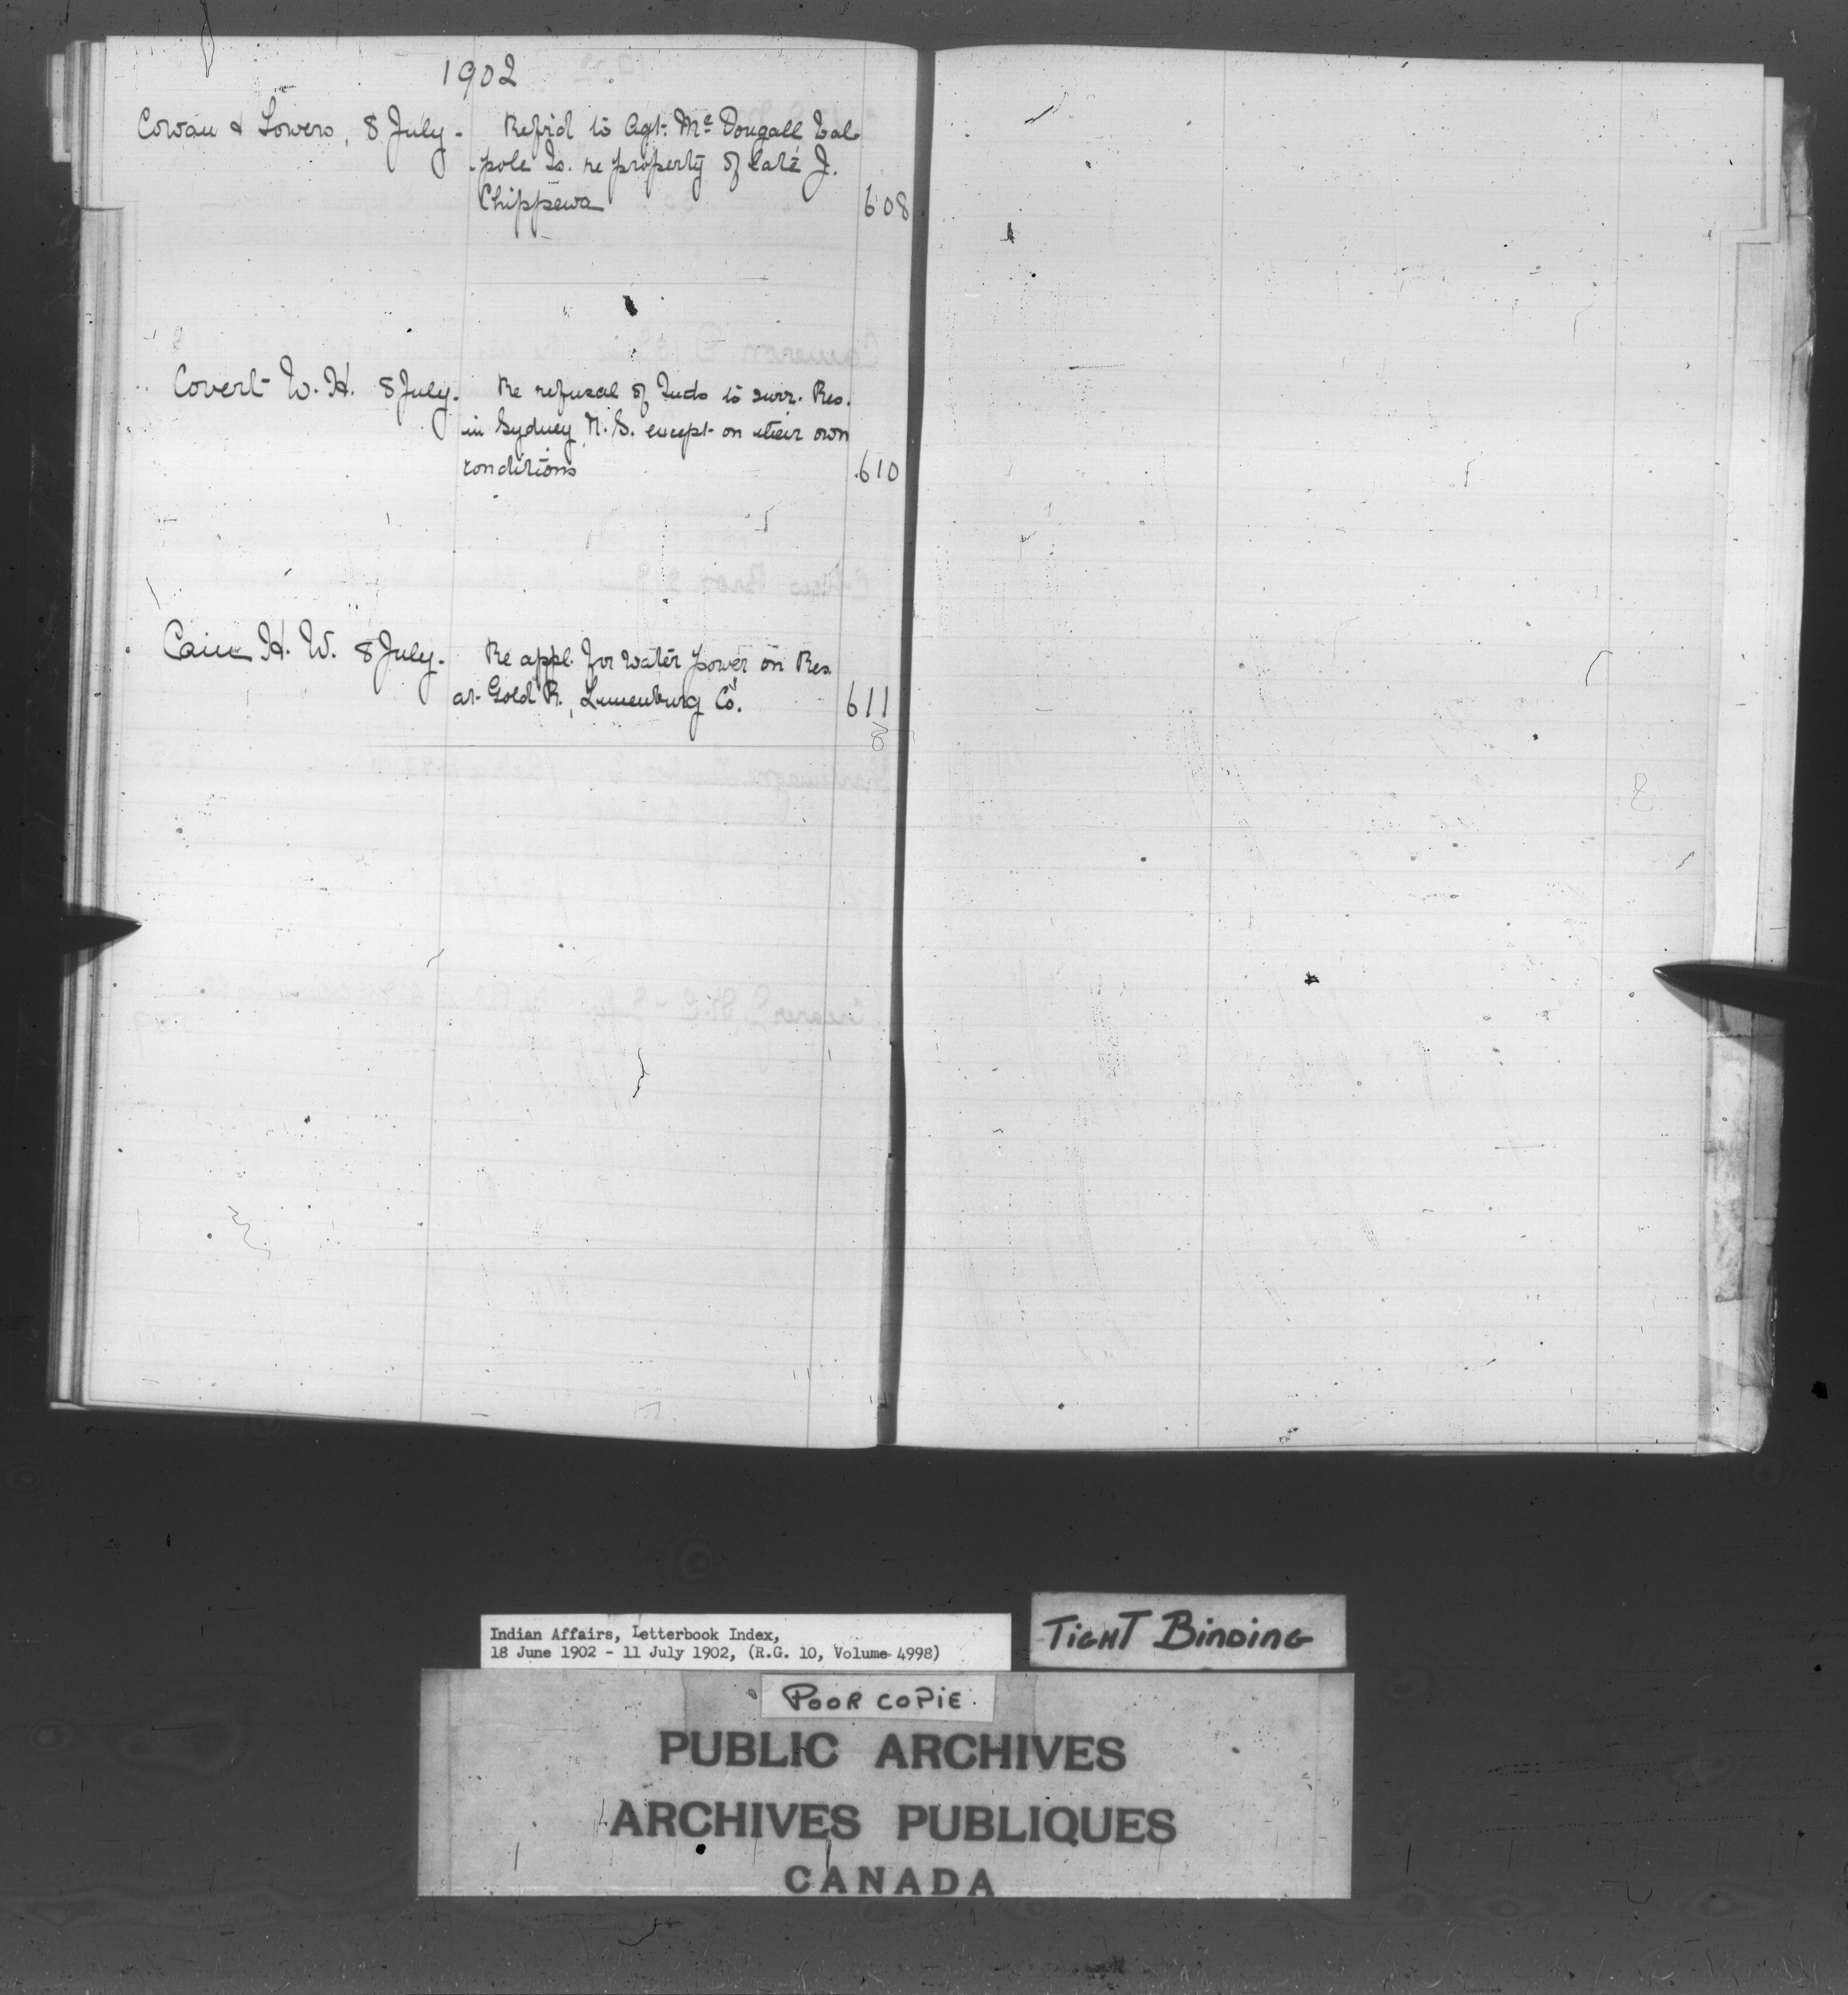 1902
Cowan & Towers, 8 July. Refrd to Agt. Mc Dougall Wal
pole Is. re property of late J.
Chippewa 608
Covert W. H. 8 July. Re refusal of Inds to surr. Res.
in Sydney N. S. except on their own
conditions 610
Cain H. W. 8 July. Re appl. for water power on Res.
at Gold R., Lunenburg Co. 611
Indian Affairs, Letterbook Index,
18 June 1902 - 11 July 1902, (R.G. 10, Volume 4998)
TIGHT BINDING
POOR COPIE
PUBLIC ARCHIVES
ARCHIVES PUBLIQUES
CANADA